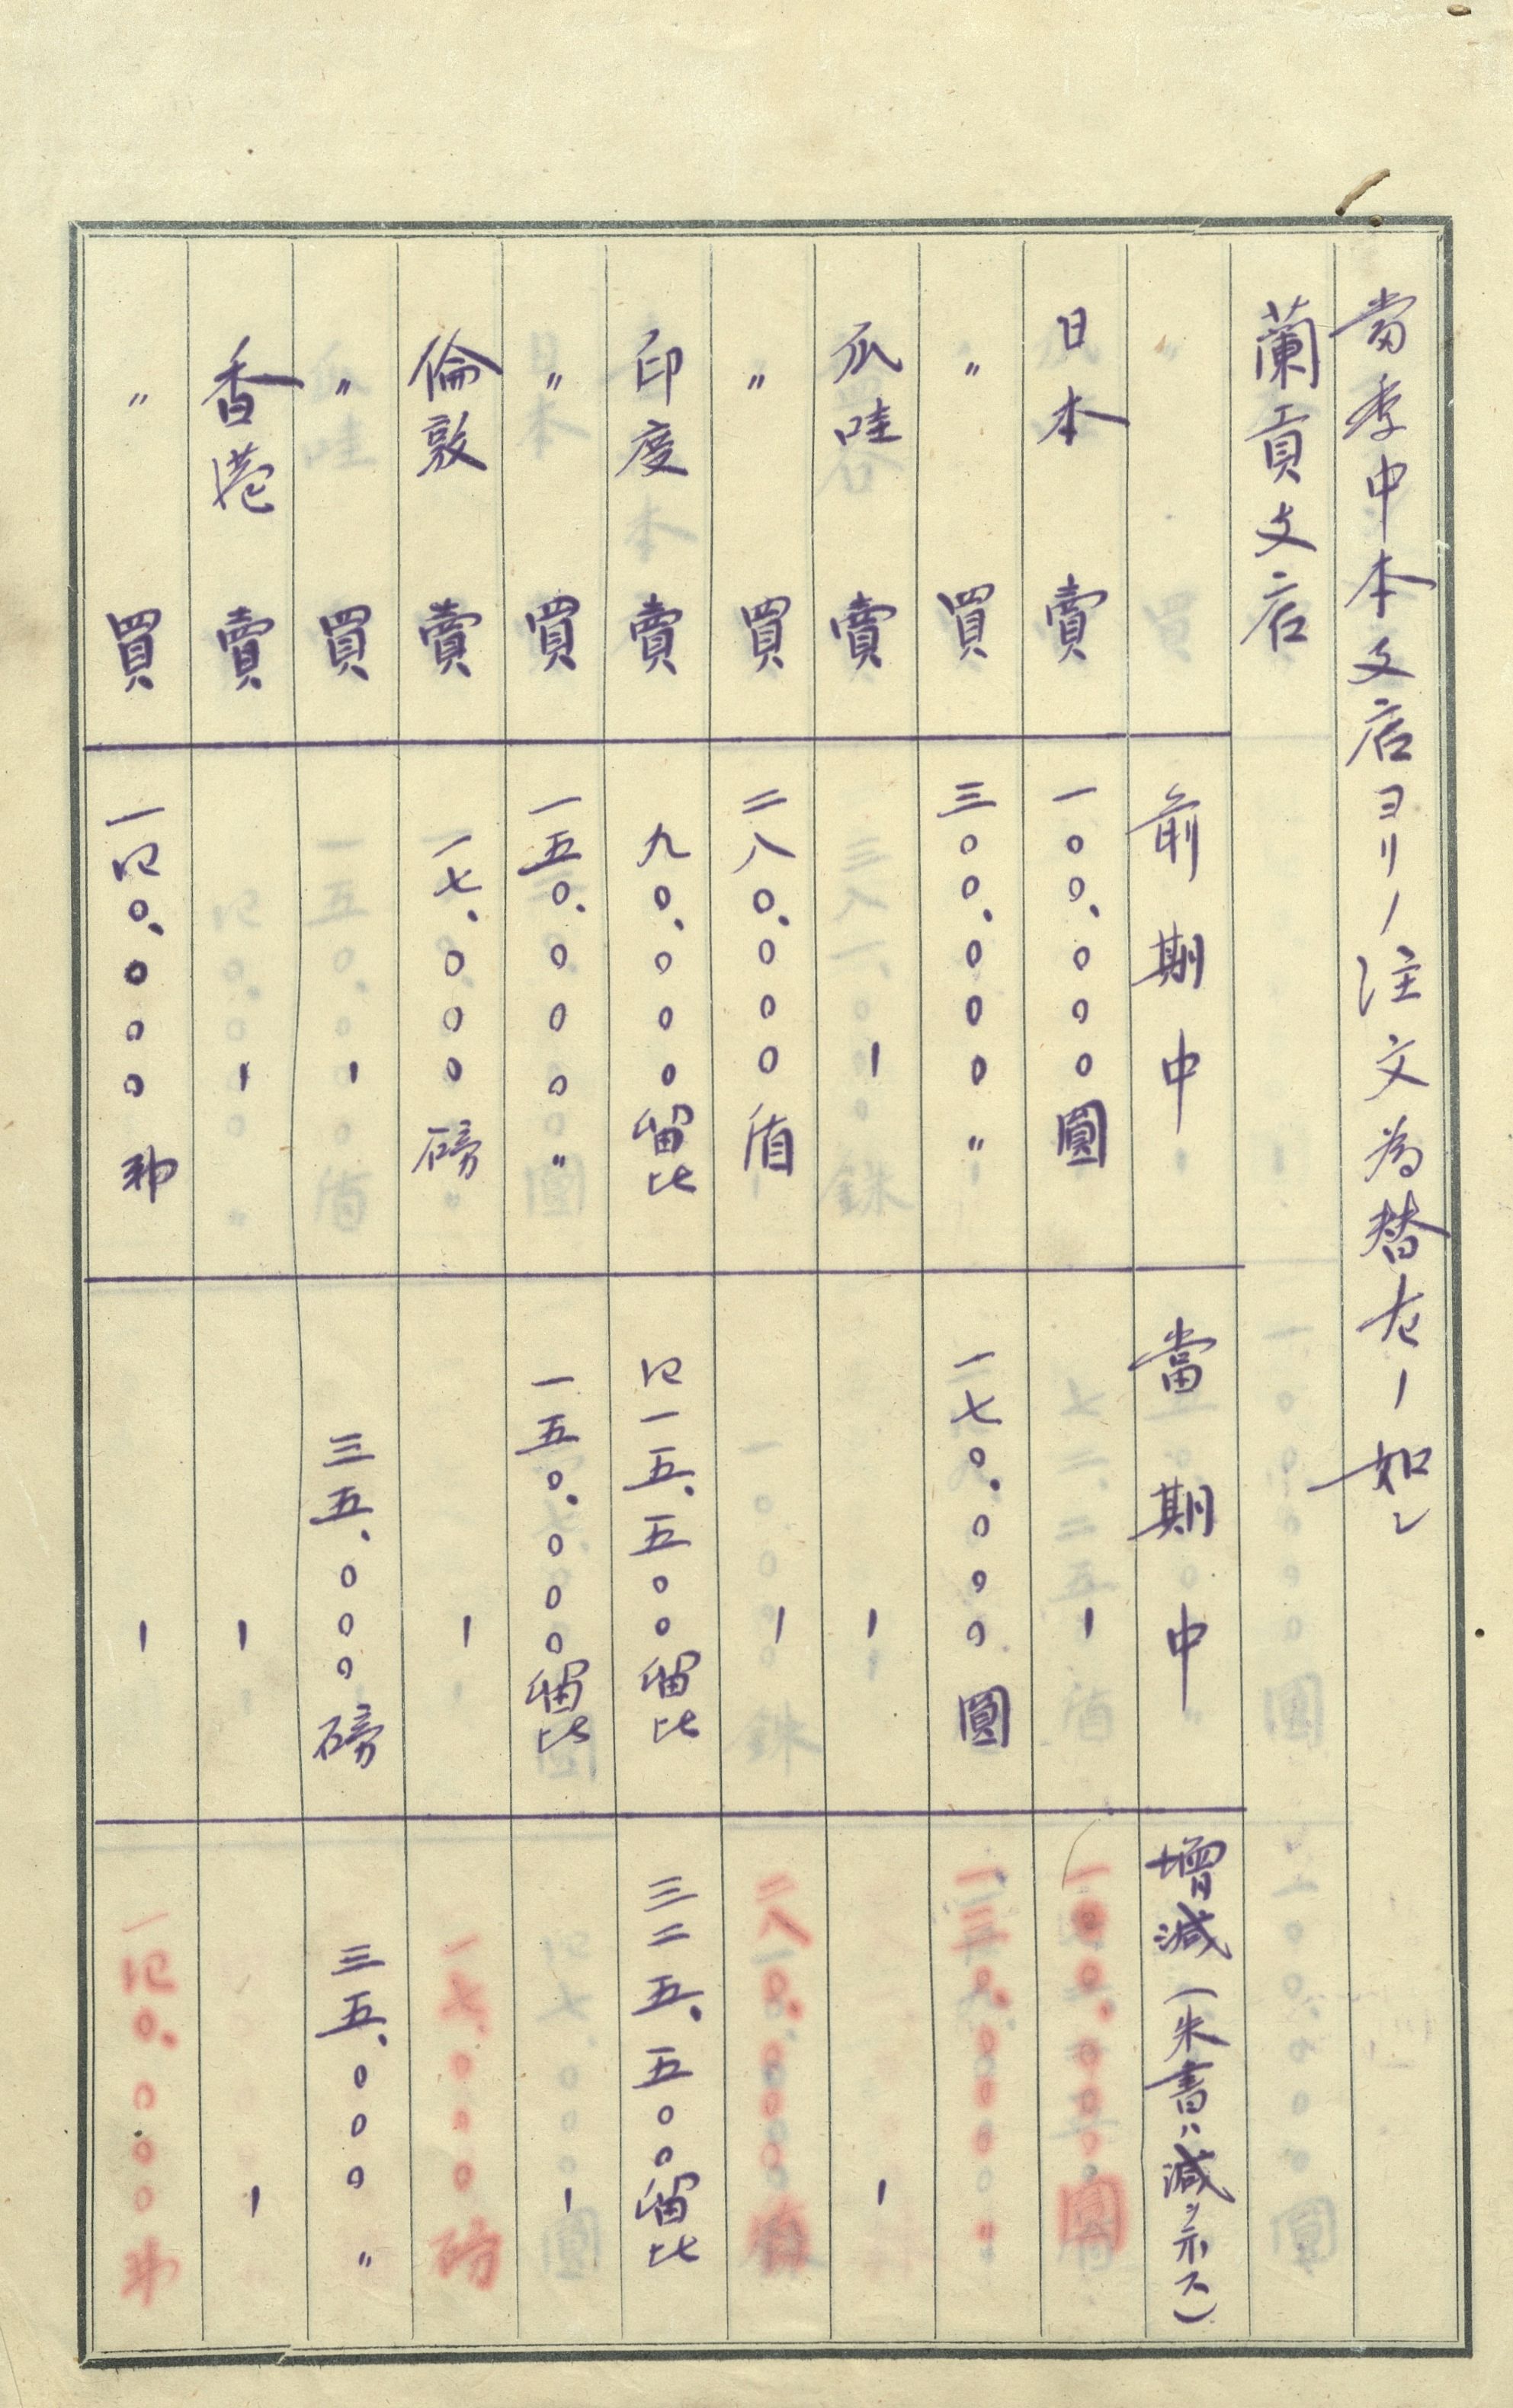 當季中本支店ヨリノ注文為替左ノ如シ
蘭貢支店
前期中 當期中 増減(朱書ハ減ヲ示ス)
日本 賣 一〇〇、〇〇〇圓 ー 一〇〇、〇〇〇圓
〃 買 三〇〇、〇〇〇〃 一七〇、〇〇〇圓 一三〇、〇〇〇〃
爪哇 賣 ー ー ー
〃 買 二八〇、〇〇〇盾 ー 二八〇、〇〇〇盾
印度 賣 九〇、〇〇〇留比 四一五、五〇〇留比 三二五、五〇〇留比
〃 買 一五〇、〇〇〇〃 一五〇、〇〇〇留比 ー
倫敦 賣 一七、〇〇〇磅 ー 一七、〇〇〇磅
〃 買 ー 三五、〇〇〇磅 三五、〇〇〇〃
香港 賣 ー ー ー
〃 買 一四〇、〇〇〇弗 ー 一四〇、〇〇〇弗